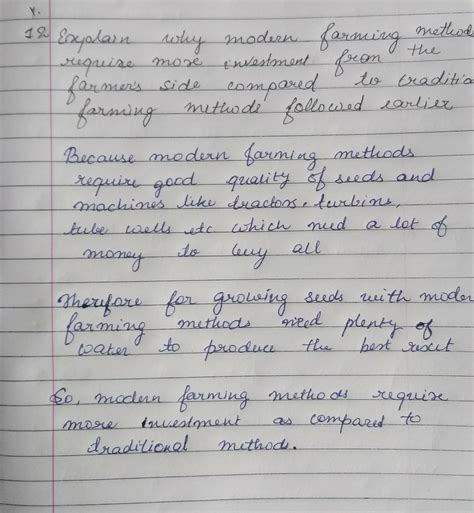 12 Explain why modern farming methods
require more investment from the
farmers side compared to traditio
farming methods followed earlier
Because modern farming methods
require good quality of seeds and
machines like tractors, turbins,
tube wells etc which need a lot of
money to buy all
Therefore for growing seeds with moder
farming methods need plenty of
water to produce the best
So, modern farming methods require
more investment as compared to
traditional methods.